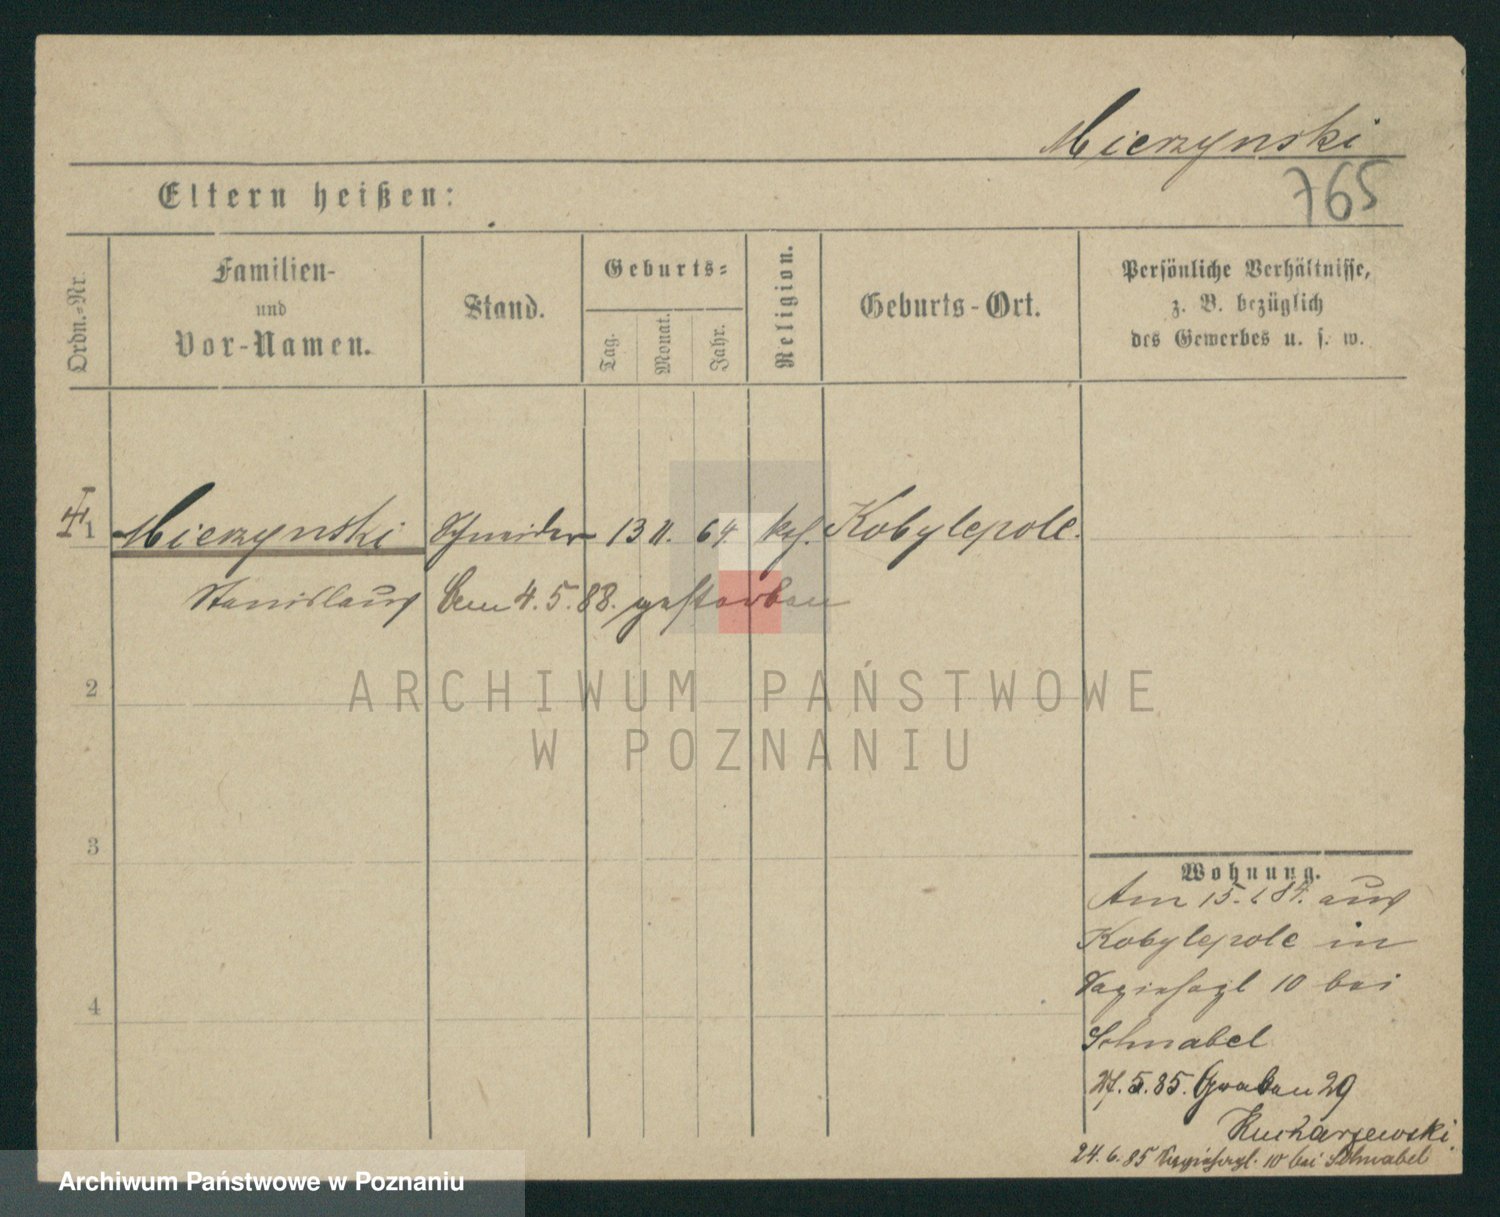 Mierzynski
765
Eltern heißen:
Ordn.-Nr.
Familien-
und
Vor-Namen.
Stand.
Geburts-
Tag.
Monat.
Jahr.
Religion.
Geburts-Ort.
Persönliche Verhältnisse,
z. B. bezüglich
des Gewerbes u. s. w.
1 Mierzynski Schneider 13 11. 64. kath. Kobylepole.
Stanislaus Am 4. 5. 88. gestorben
ARCHIWUM PAŃSTWOWE
W POZNANIU
2
3
4
Wohnung.
Am 15. 84. aus
Kobylepole in
10 bei
Schnabel
27. 5. 85. Graben 29
Kucharzewski
24. 6. 85 10 bei Schnabel
Archiwum Państwowe w Poznaniu